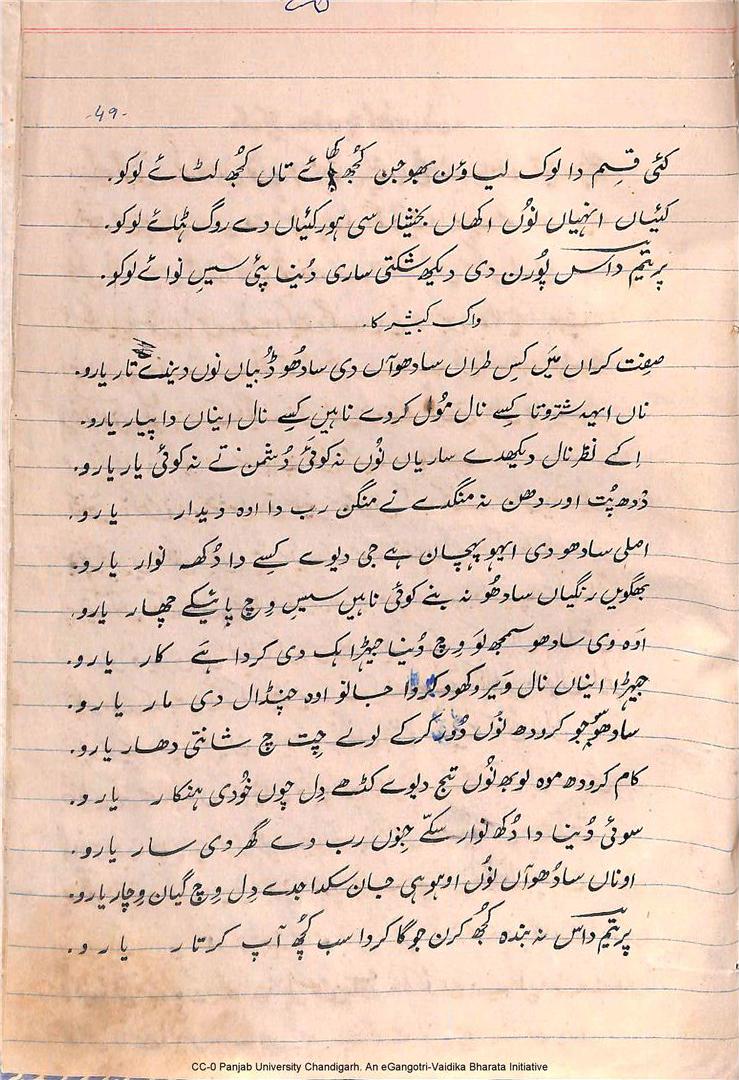 -49-
کئی قسِم دا لوک لیاؤن بھوجن کُجھ کھائے تاں کُجھ لٹائے لوکو.
کئیاں انہیاں نوُں اکھاں بخشیاں سی ہور کئیاں دے روگ ہٹائے لوکو.
پریتم داس پُورن دی دیکھ شکتی ساری دُنیا پئی سیسِ نوائے لوکو.
واک کبیشر کا.
صِفت کراں مَیں کِس طراں سادھوآں دی سادھو ڈُبیاں نوں دیندے تار یارو.
ناں ایہہ شتروتا کِسے نال مُول کردے ناہیں کِسے نال ایناں دا پیار یارو.
اِکے نظر نال دیکھدے ساریاں نُوں نہ کوئی دُشمن تے نہ کوئی یار یارو.
دُدھ پُت اور دھن نہ منگدے نے منگن رب دا اوہ دیدار یارو.
اصلی سادھو دی ایہو پہچان ہے جی دیوے کِسے دا دُکھہ نوار یارو.
بھگویں رنگیاں سادھُو نہ بنے کوئی ناہیں سیسِ وِچ پائیکے چھار یارو.
اوہ وی سادھو سمجھ لَو وِچ دُنیا جیہڑا ہک دی کردا ہَے کار یارو.
جیہڑا ایناں نال وَیر وکھود کردا جانو اوہ چنڈال دی مار یارو.
سادھو جو کرودھ نوُں دُور کرکے لوے چِت چ شانتی دھار یارو.
کام کرودھ موہ لوبھ نُوں تج دیوے کڈھے دِل چوں خُودی ہنکار یارو.
سوئی دُنیا دا دُکھ نوار سکّے جِنوں رب دے گھر دی سار یارو.
اوناں سادُھوآں نُوں اوہو ہی جان سکدا جدے دِل وِچ گیان وِچار یارو.
پریتم داس نہ بندہ کُجھ کرن جوگا کردا سب کُچھ آپ کرتار یارو.
CC-0 Panjab University Chandigarh. An eGangotri-Vaidika Bharata Initiative